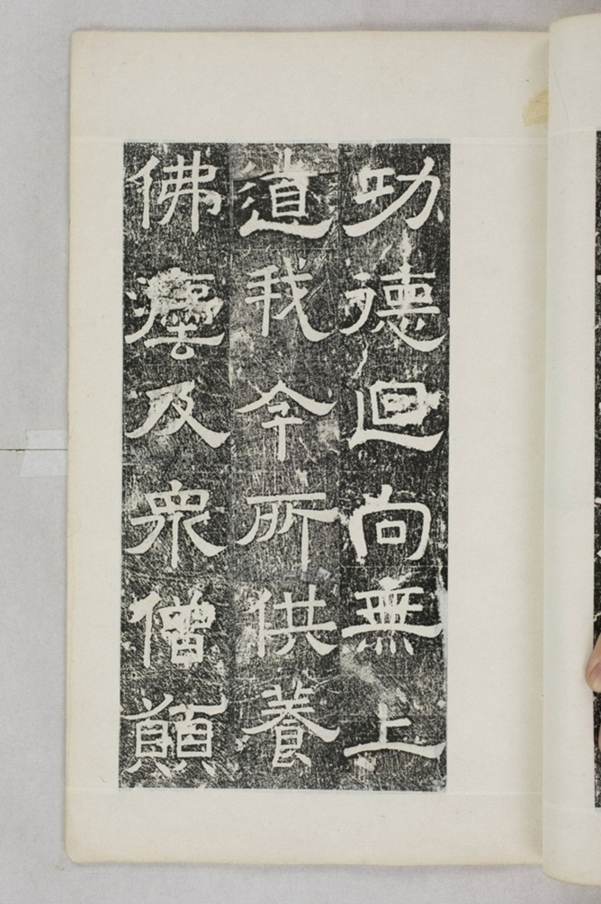 功德迴向無上
道我今所供養
佛灋及眾僧願